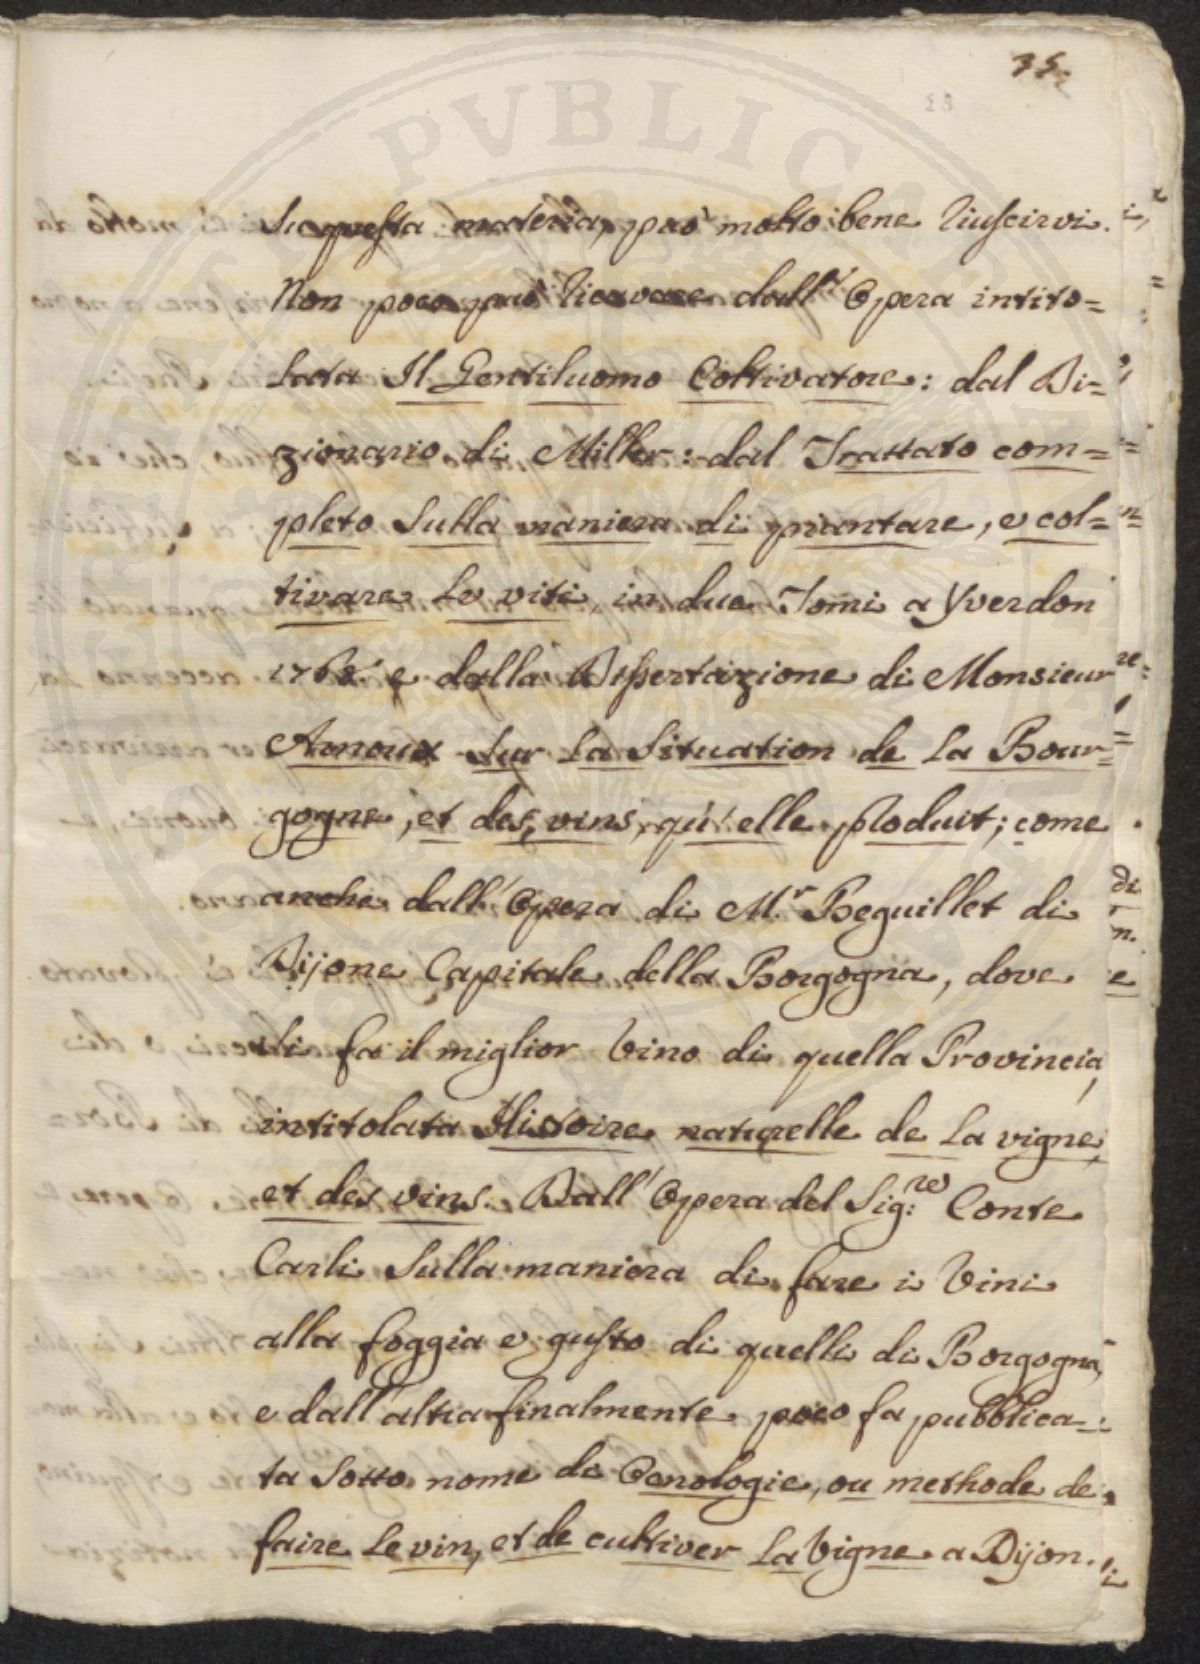 35.
Su questa materia, può molto bene riuscirvi.
Non poco può ricavare dall'Opera intito=
lata Il Gentiluomo Coltivatore: dal Di=
zionario di Miller: dal Trattato com=
pleto Sulla maniera di piantare, e col=
tivare le viti, in due Tomi a Yverdon
1768. e dalla Dissertazione di Monsieur
Arnoux Sur la Situation de la Bour=
gogne, et des vins, qu'elle produit; come
anche dall'Opera di M.r Beguillet di
Dijone Capitale della Borgogna, dove
si fa il miglior Vino di quella Provincia,
intitolata Histoire naturelle de la vigne,
et des vins. Dall'Opera del Sig:re Conte
Carli Sulla maniera di fare i Vini
alla foggia e gusto di quelli di Borgogna,
e dall'altra finalmente poco fa pubblica=
ta Sotto nome di Oenologie, ou methode de
faire le vin, et de cultiver la Vigne a Dijon.